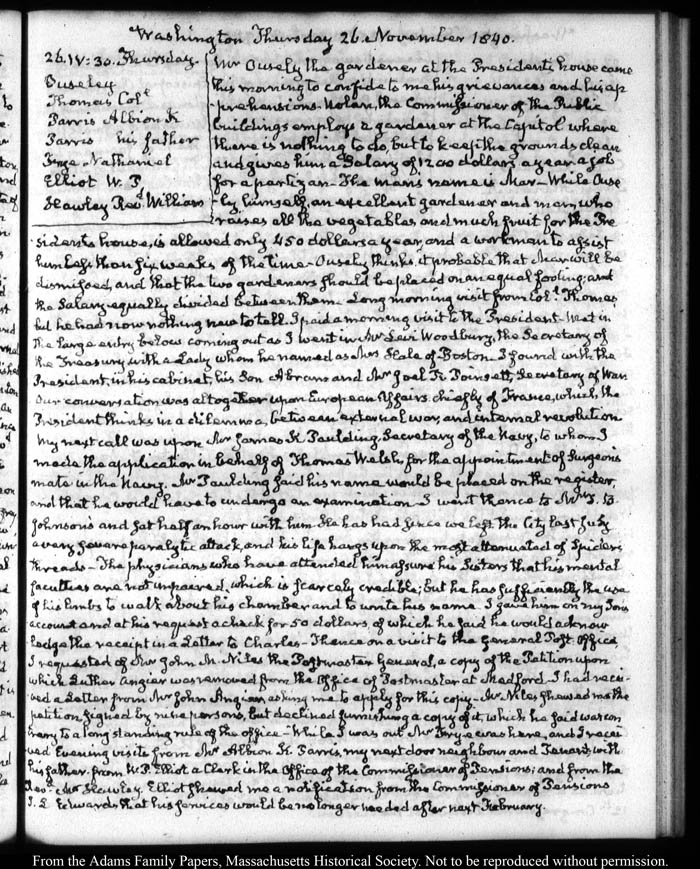 Washington Thursday 26. November 1840.
26. IV: 30. Thursday.
Ouseley
Thomas Colᵗ
Parris Albion K
Parris his father
Frye Nathaniel
Elliot W. P.
Hawley Revᵈ William
Mr Ousely the gardener at the President's house came
this morning to confide to me his grievances and his ap
prehensions. Nolan, the Commissioner of the Public
buildings employs a gardener at the Capitol where
there is nothing to do, but to keep the grounds clean
and gives him a Salary of 1200 dollars a year a job
for a partizan— The man's name is Mar— While Ouse
ly himself, an excellent gardener and man, who
raises all the vegetables and much fruit for the Pre
sident's house, is allowed only 450 dollars a year, and a workman to assist
him less than six weeks of the time— Ousely thinks it probable that Mar will be
dismissed, and that the two gardeners should be placed on an equal footing, and
the Salary equally divided between them. Long morning visit from Colᵗ Thomas
but he had now nothing new to tell. I paid a morning visit to the President. Met in
the large entry below coming out as I went in Mr Levi Woodbury, the Secretary of
the Treasury with a Lady whom he named as Mrs Hale of Boston. I found with the
President, in his cabinet, his Son Abram and Mr Joel R Poinsett, Secretary of War.
Our conversation was altogether upon European Affairs chiefly of France, which, the
President thinks in a dilemma, between external war, and internal revolution
My next call was upon Mr James K Paulding, Secretary of the Navy, to whom I
made the application in behalf of Thomas Welsh, for the appointment of Surgeons
mate in the Navy. Mr Paulding said his name would be placed on the register,
and that he would have to undergo an examination. I went thence to Mr T. B
Johnson's and sat half an hour with him. He has had since we left the City last July
a very severe paralytic attack, and his life hangs upon the most attenuated of Spiders
threads— The physicians who have attended him assure his Sisters that his mental
faculties are not impaired, which is scarcely credible; but he has sufficiently the use
of his limbs to walk about his chamber and to write his name. I gave him on my Sons
account and at his request a check for 50 dollars, of which he said he would acknow
ledge the receipt in a Letter to Charles— Thence on a visit to the General Post Office,
I requested of Mr John M. Niles the Postmaster General, a copy of the Petition upon
which Luther Angier was removed from the Office of Postmaster at Medford. I had recei-
ved a Letter from Mr John Angier asking me to apply for this copy— Mr Niles shewed me the
petition, signed by nine persons, but declined furnishing a copy of it, which he said was con
trary to a long standing rule of the office— While I was out Mr Frye was here, and I recei
ved Evening visits from Mr Albion K. Parris, my next door neighbour and Tenant, with
his father. from W. P. Elliot a Clerk in the Office of the Commissioner of Pensions; and from the
Revᵈ Mr Hawley. Elliot shewed me a notification from the Commissioner of Pensions
J. L Edwards that his services would be no longer needed after next February.
From the Adams Family Papers, Massachusetts Historical Society. Not to be reproduced without permission.